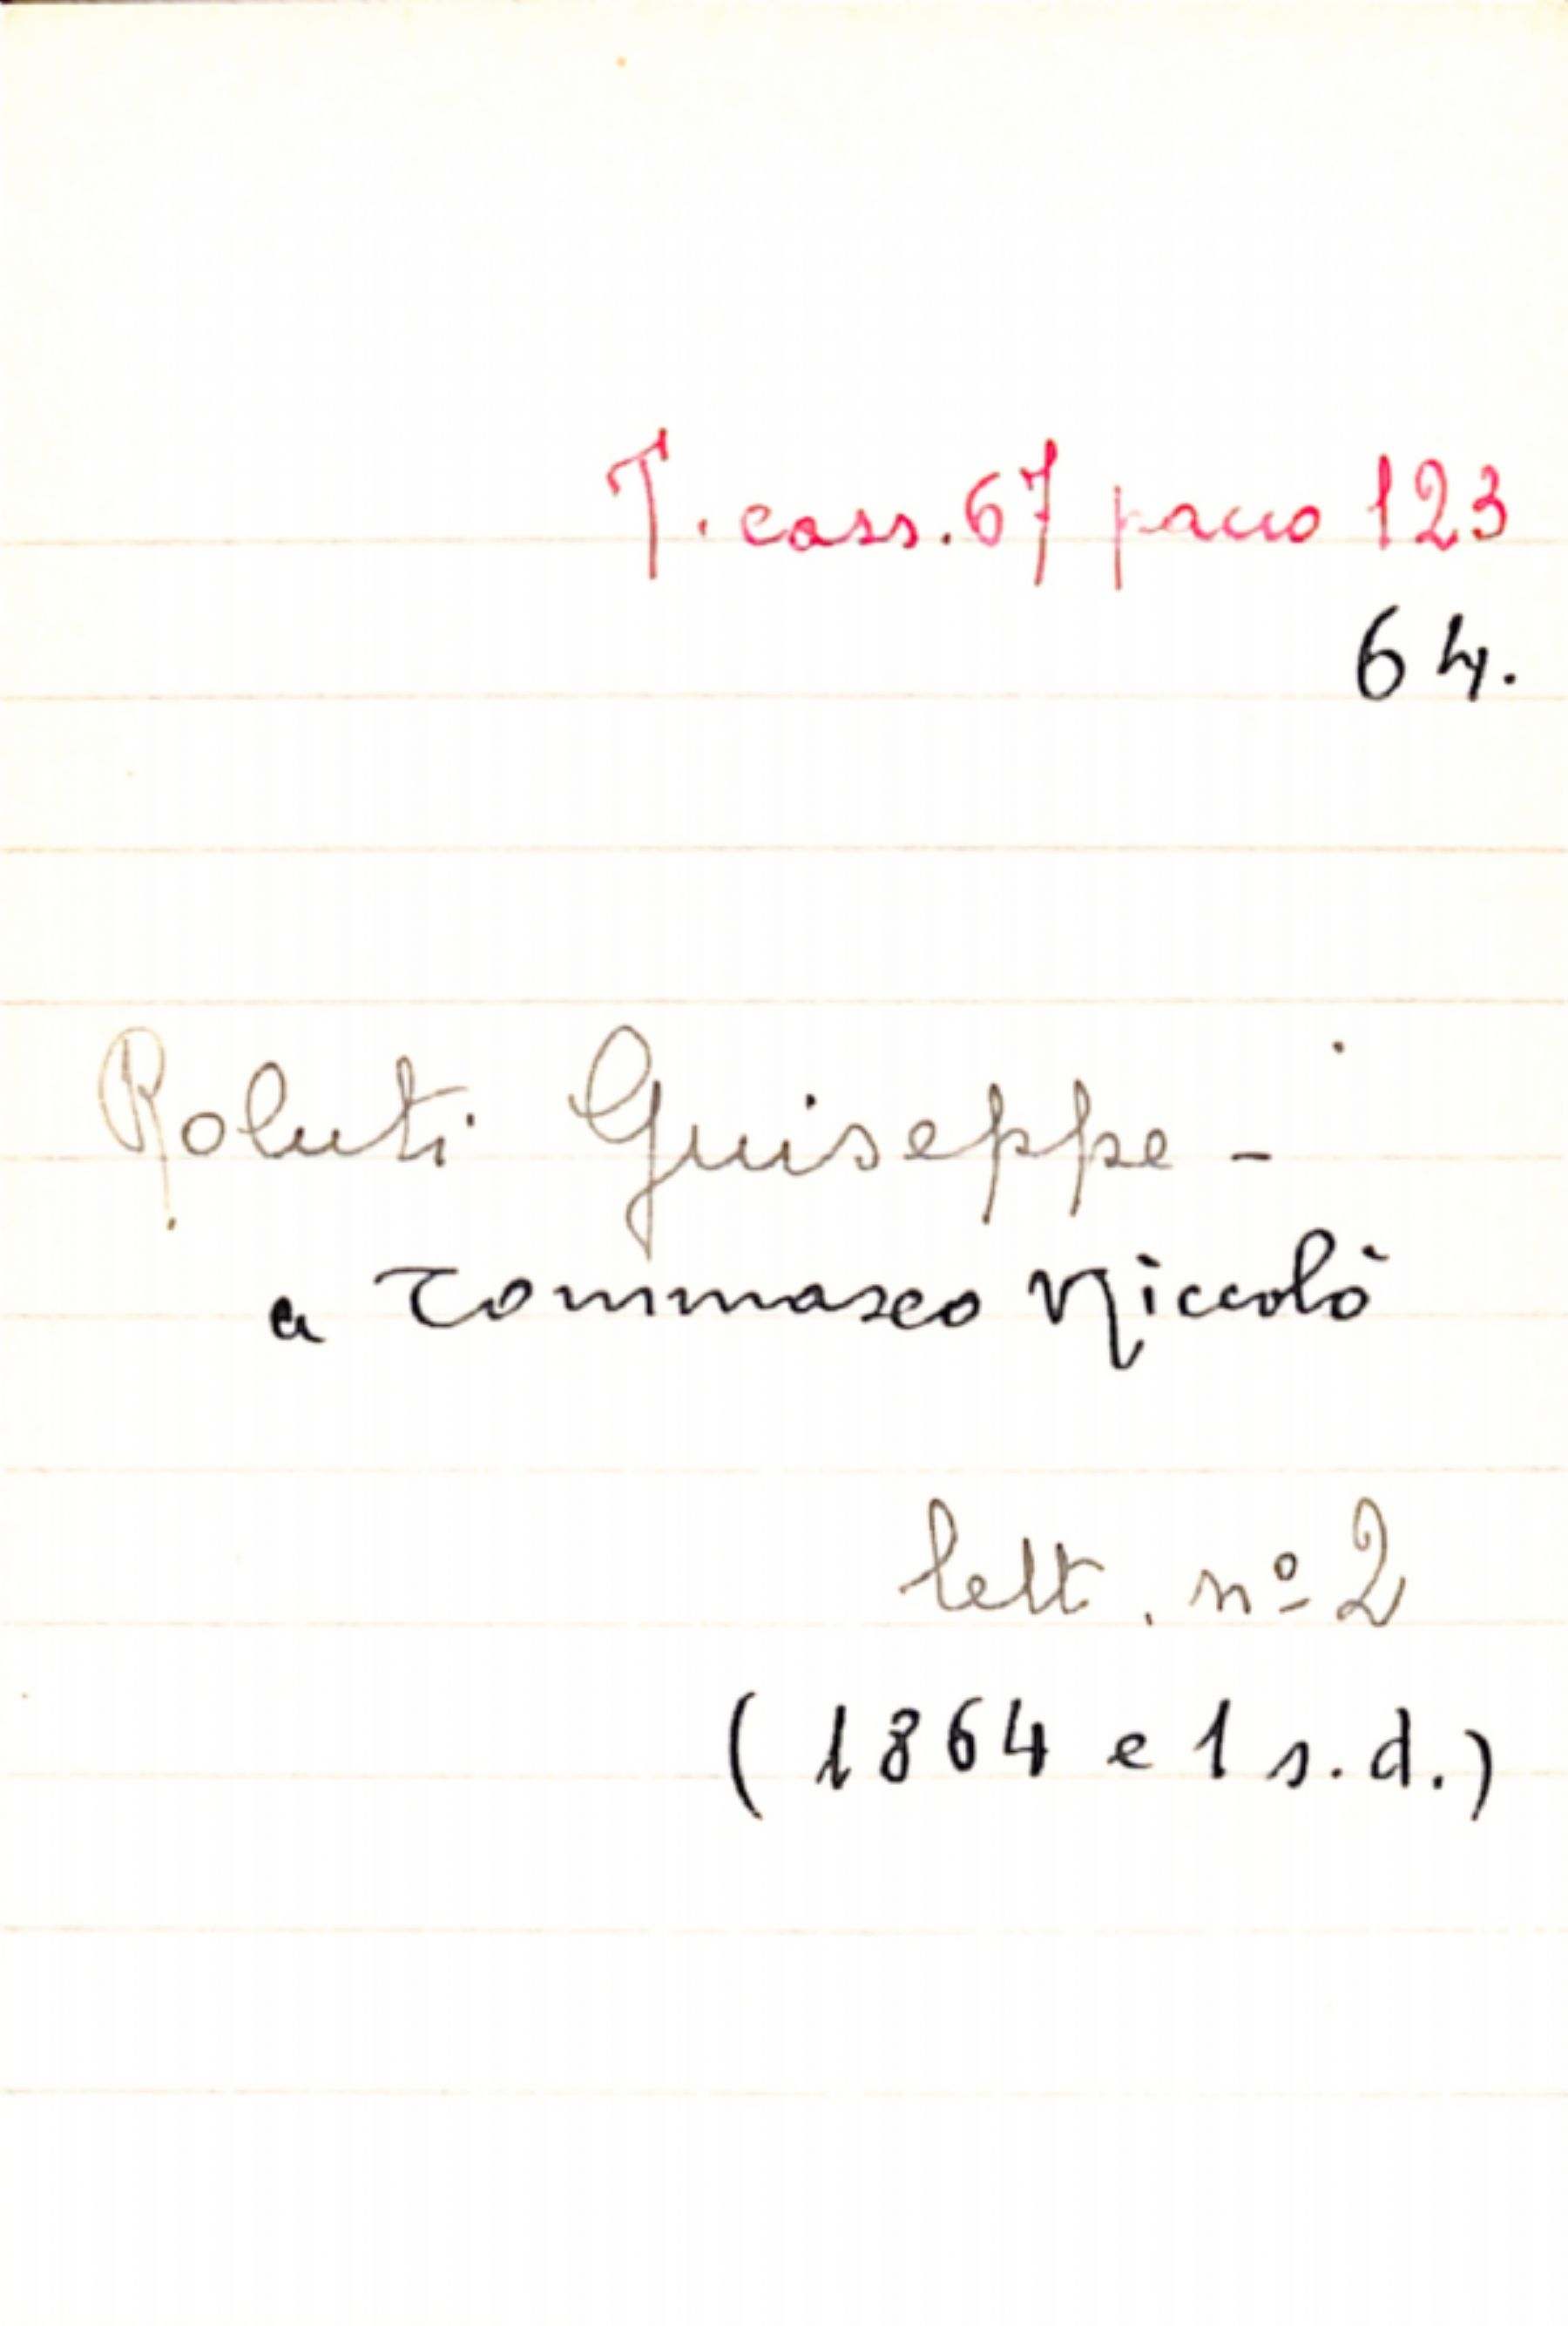 T. cass. 67 pacco 123
64.
Roluti Giuseppe -
a Tommaseo Niccolò
lett. nº 2
(1864 e 1 s.d.)